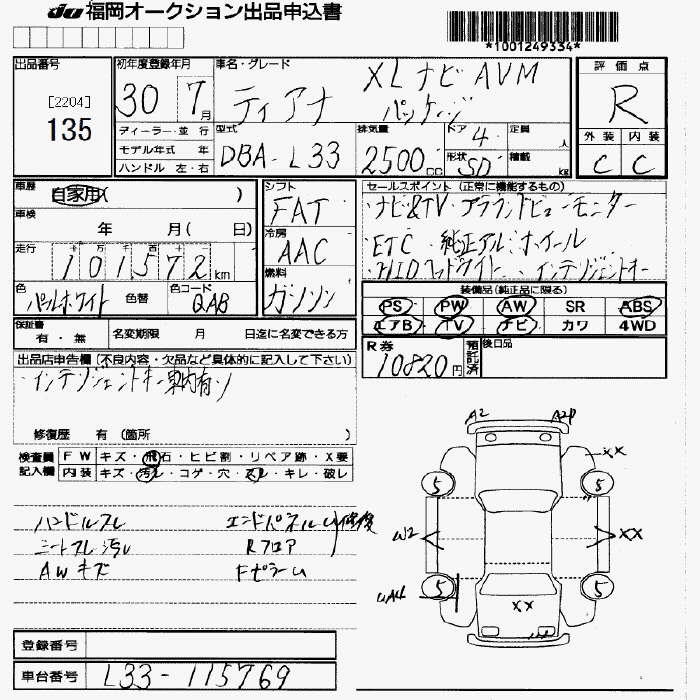 JU 福岡オークション出品申込書
*1001249334*
出品番号
[2204]
135
初年度登録年月
30 7月
車名・グレード
ティアナ XLナビAVM
パッケージ
評価点
R
外装 内装
C C
ディーラー・並行
モデル年式 年
ハンドル 左・右
型式
DBA-L33
排気量
2500CC
ドア 4
形状 SD
定員 人
積載 kg
車歴
自家用( )
車検
年 月( 日)
走行
十万千百十一
101572km
色
パールホワイト
色替
色コード
QAB
シフト
FAT
冷房
AAC
燃料
ガソリン
セールスポイント(正常に機能するもの)
・ナビ&TV・アラウンドビューモニター
・ETC・純正アルミホイール
・HIDヘッドライト・インテリジェントキー
装備品(純正品に限る)
PS PW AW SR ABS
エアB TV ナビ カワ 4WD
保証書
有・無
名変期限 月 日迄に名変できる方
R券
10820円
預託済
後日品
出品店申告欄(不良内容・欠品など具体的に記入して下さい)
・インテリジェントキー車内有り
修復歴 有 (箇所 )
検査員記入欄
FW キズ・飛石・ヒビ割・リペア跡・X要
内装 キズ・汚レ・コゲ・穴・スレ・キレ・破レ
ハンドルスレ
シートスレ汚レ
AWキズ
エンドパネルU修復
Rフロア
Fピラーム
A2
XX
5
5
W2
XX
UA4
5
5
XX
登録番号
車台番号
L33-115769